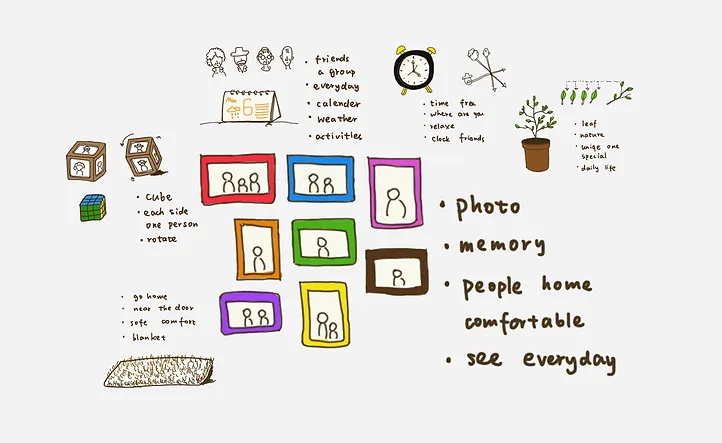 • friends
a group
• everyday
• calender
• weather
• activities
Mar
6
• time free
• where are you
• relaxe
• clock friends
• leaf
• nature
• uniqe one
special
• daily life
• cube
• each side
one person
• rotate
• photo
• memory
• people home
comfortable
• see everyday
• go home
• near the door
• safe comfort
• blanket